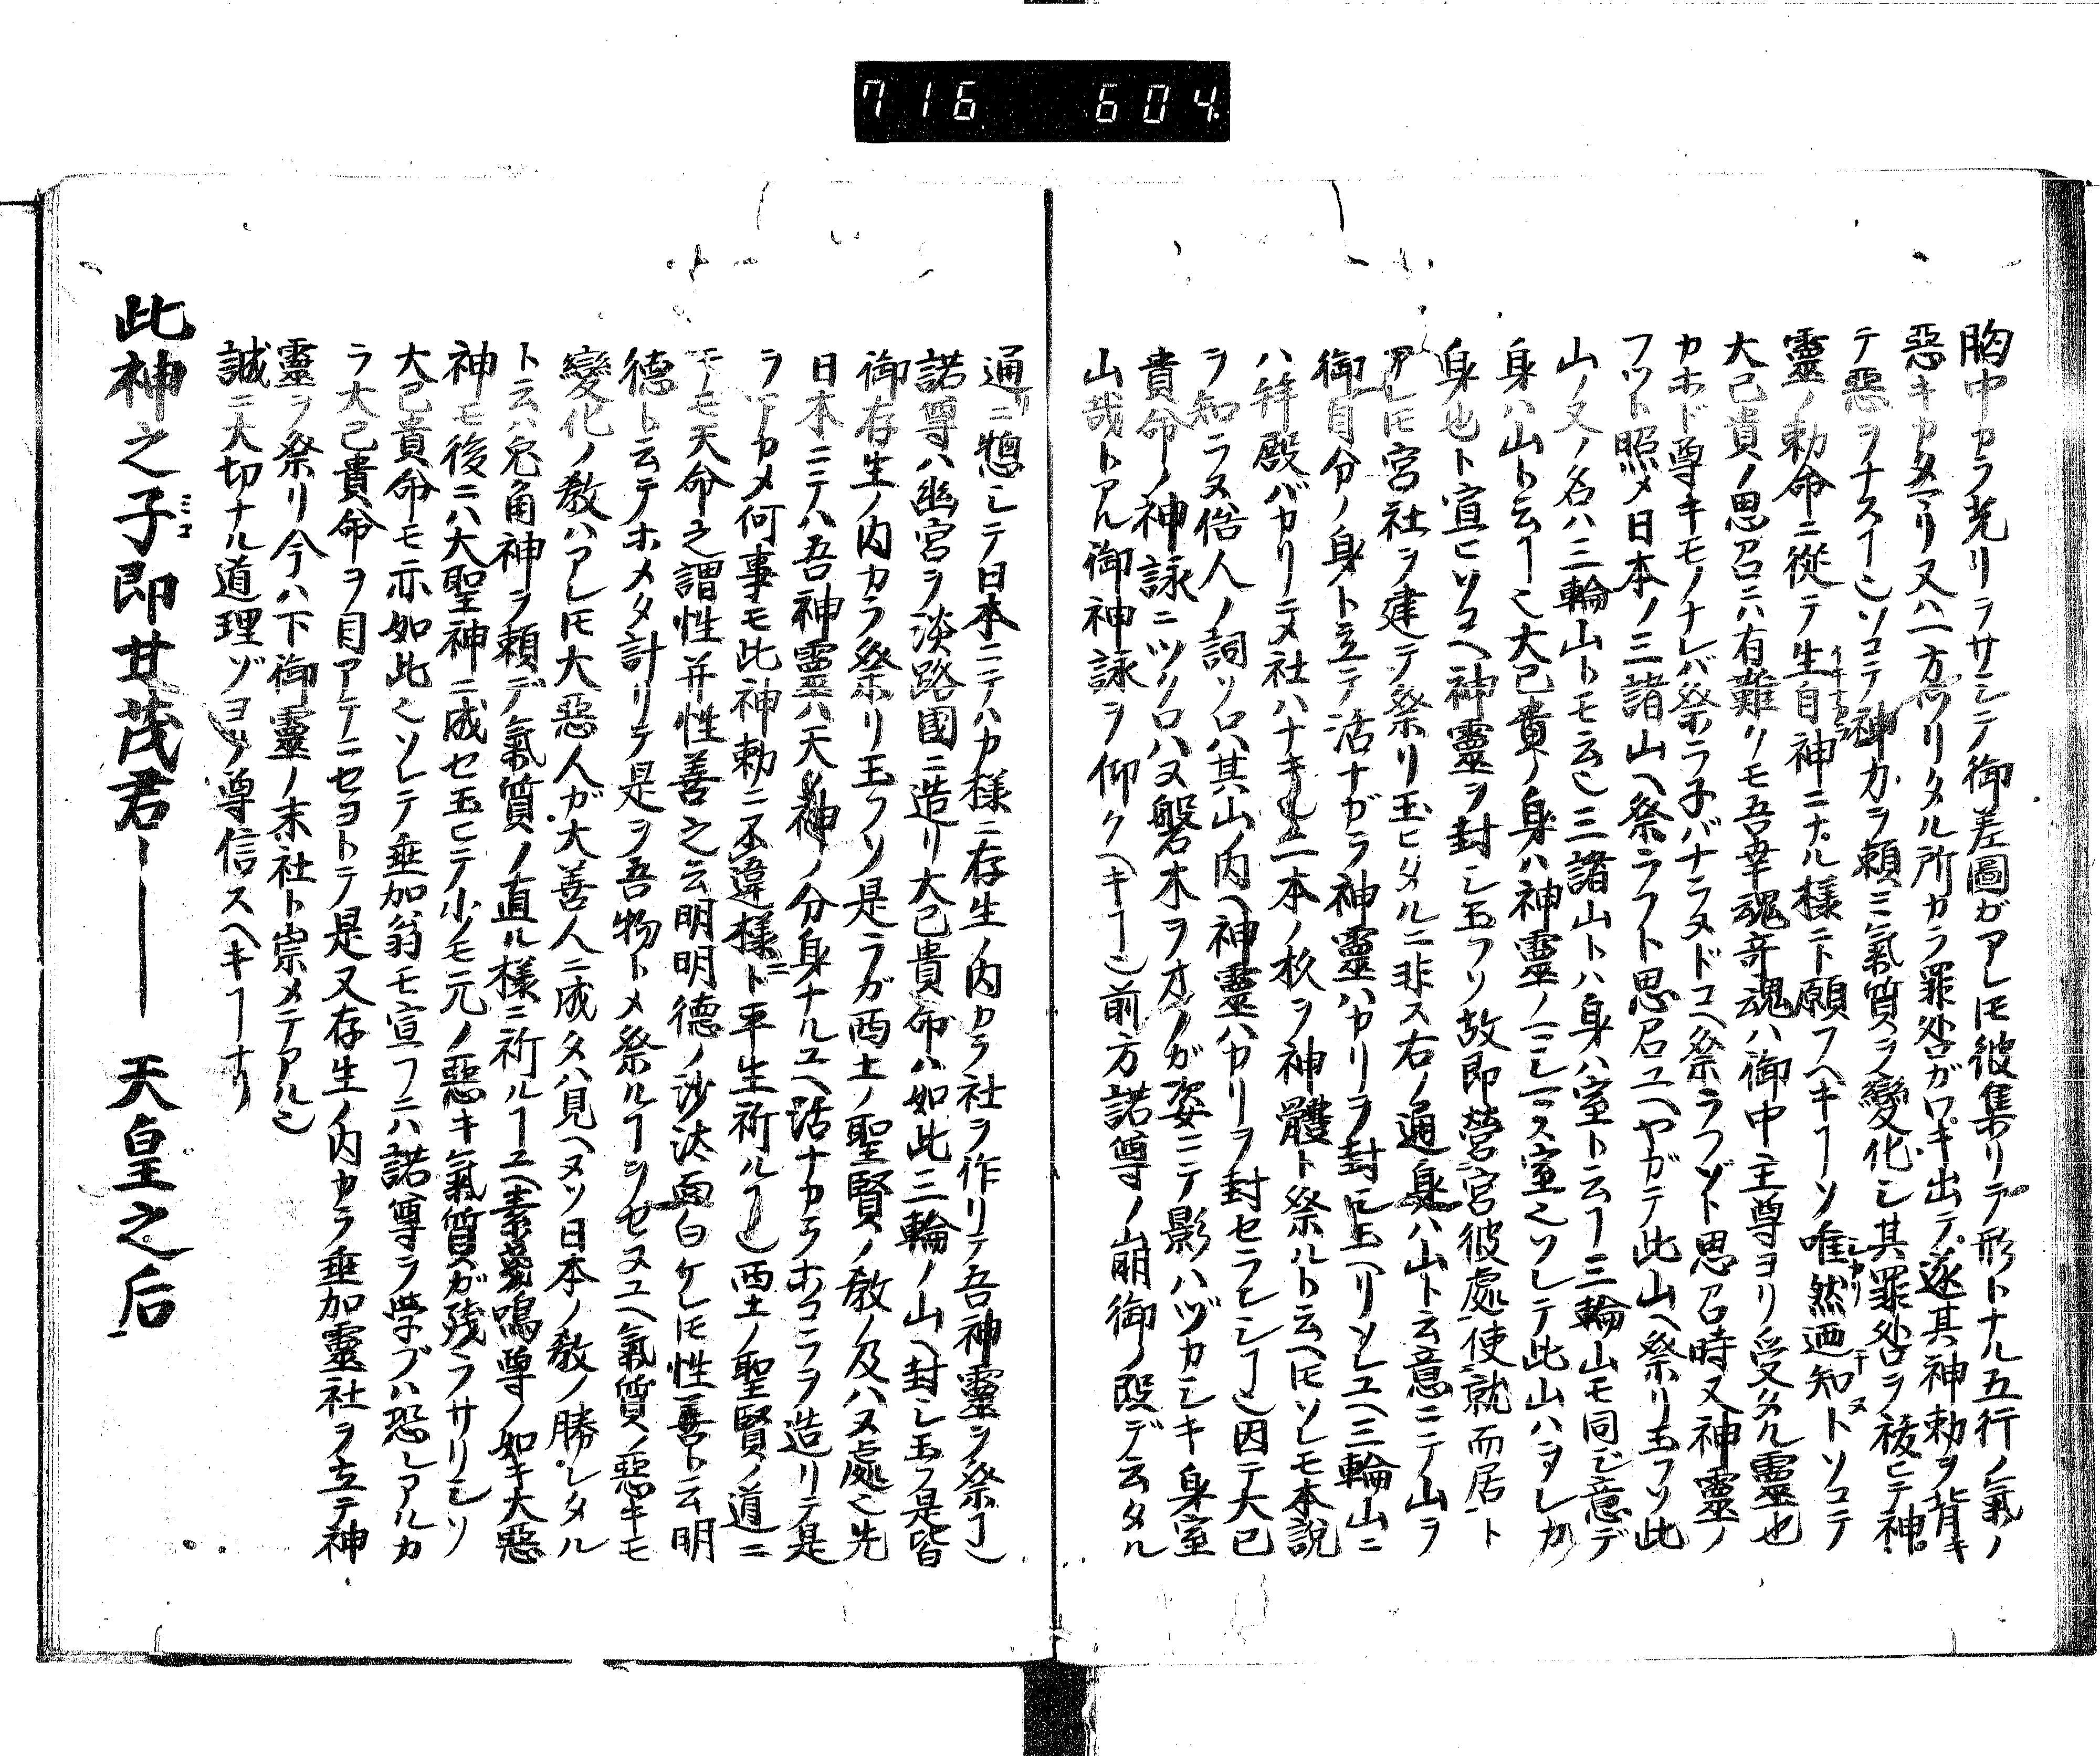 716 604
胸中カラ光リラサシテ御差圖ガアレ𪜈彼集リテ形トナル五行ノ氣ノ
惡キカタマリ又ハ一方ヘリタル所カラ罪咎ガワキ出テ遂其神勅ヲ背キ
テ惡ヲナスヿ也ソコテ神力ヲ頼ミ氣質ヲ變化シ其罪咎ヲ祓ヒテ神
靈ノ勅命ニ從テ生自神ニナル様ニト願フヘキヿソ唯然廼知ヌトソコテ
大已貴ノ思召ニハ有難クモ吾幸魂竒魂ハ御中主尊ヨリ受タル靈也
カホド尊キモノナレバ祭ラ子バナラヌドコヘ祭ラフゾト思召時又神靈ノ
フツト照メ日本ノ三諸山ヘ祭ラフト思召ユヘヤガテ此山ヘ祭リ玉フソ此
山ノ又ノ名ハ三輪山トモ云也三諸山トハ身ハ室ト云ヿ三輪山モ同じ意デ
身ハ山ト云ヿ也大已貴ノ身ハ神靈ノマシマス室也ソレテ此山ハヲレカ
身也ト宣ヒソコヘ神靈ヲ封シ玉フソ故即營宮彼處使就而居ト
アレ𪜈宮社ヲ建テ祭リ玉ヒタルニ非ス右ノ通身ハ山ト云意ニテ山ヲ
御自分ノ身ト立テ活ナガラ神靈ハカリヲ封シ玉ヘリソレユヘ三輪山ニ
ハ拜殿バカリニテ社ハナキ也二本ノ杦ヲ神體ト祭ルト云ヘ𪜈ソレモ本説
ヲ知ラヌ俗人ノ詞ソロ其山ノ内ヘ神靈ハカリヲ封セラレシヿ也因テ大已
貴命ノ神詠ニツクロハヌ磐木ヲオノガ姿ニテ影ハヅカシキ身室
山哉トアル御神詠ヲ仰クヘキヿ也前方諾尊ノ崩御ノ段デ云タル
通リニ惣シテ日本ニテハカ様ニ存生ノ内カラ社ヲ作リテ吾神靈ヲ祭ヿ也
諾尊ハ幽宮ヲ淡路國ニ造リ大已貴命ハ如此三輪ノ山ヘ封シ玉フ是皆
御存生ノ内カラ祭リ玉フソ是ラガ西土ノ聖賢ノ教ノ及ハヌ處也先
日本ニテハ吾神靈ハ天神ノ分身ナルユヘ活ナカラホコラヲ造リテ是
ヲアカメ何事モ此神勅ニ不違様ニト平生祈ルヿ也西土ノ聖賢ノ道ニ
モ天命之謂性并性善之云明明德ノ沙汰面白ケレ𪜈性善ト云明
德ト云テホメタ計リテ是ヲ吾物トメ祭ルヿヲセヌユヘ氣質ノ惡キモ
變化ノ教ハアレ𪜈大惡人ガ大善人ニ成タハ見ヘヌソ日本ノ教ノ勝レタル
ト云ハ兎角神ヲ頼デ氣質ノ直ル様ニ祈ルヿユヘ素戔嗚尊ノ如キ大惡
神モ後ニハ大聖神ニ成セ玉ヒテ少モ元ノ惡キ氣質ガ残ラサリシソ
大已貴命モ亦如此也ソレテ垂加翁モ宣フニハ諾尊ヲ學ブハ恐レアルカ
ラ大已貴命ヲ目アテニセヨトテ是又存生ノ内カラ垂加靈社ヲ立テ神
靈ヲ祭リ今ハ下御靈ノ末社ト崇メテアル也
誠ニ大切ナル道理ゾヨク尊信スヘキヿナリ
此神之子即甘茂君―― 天皇之后